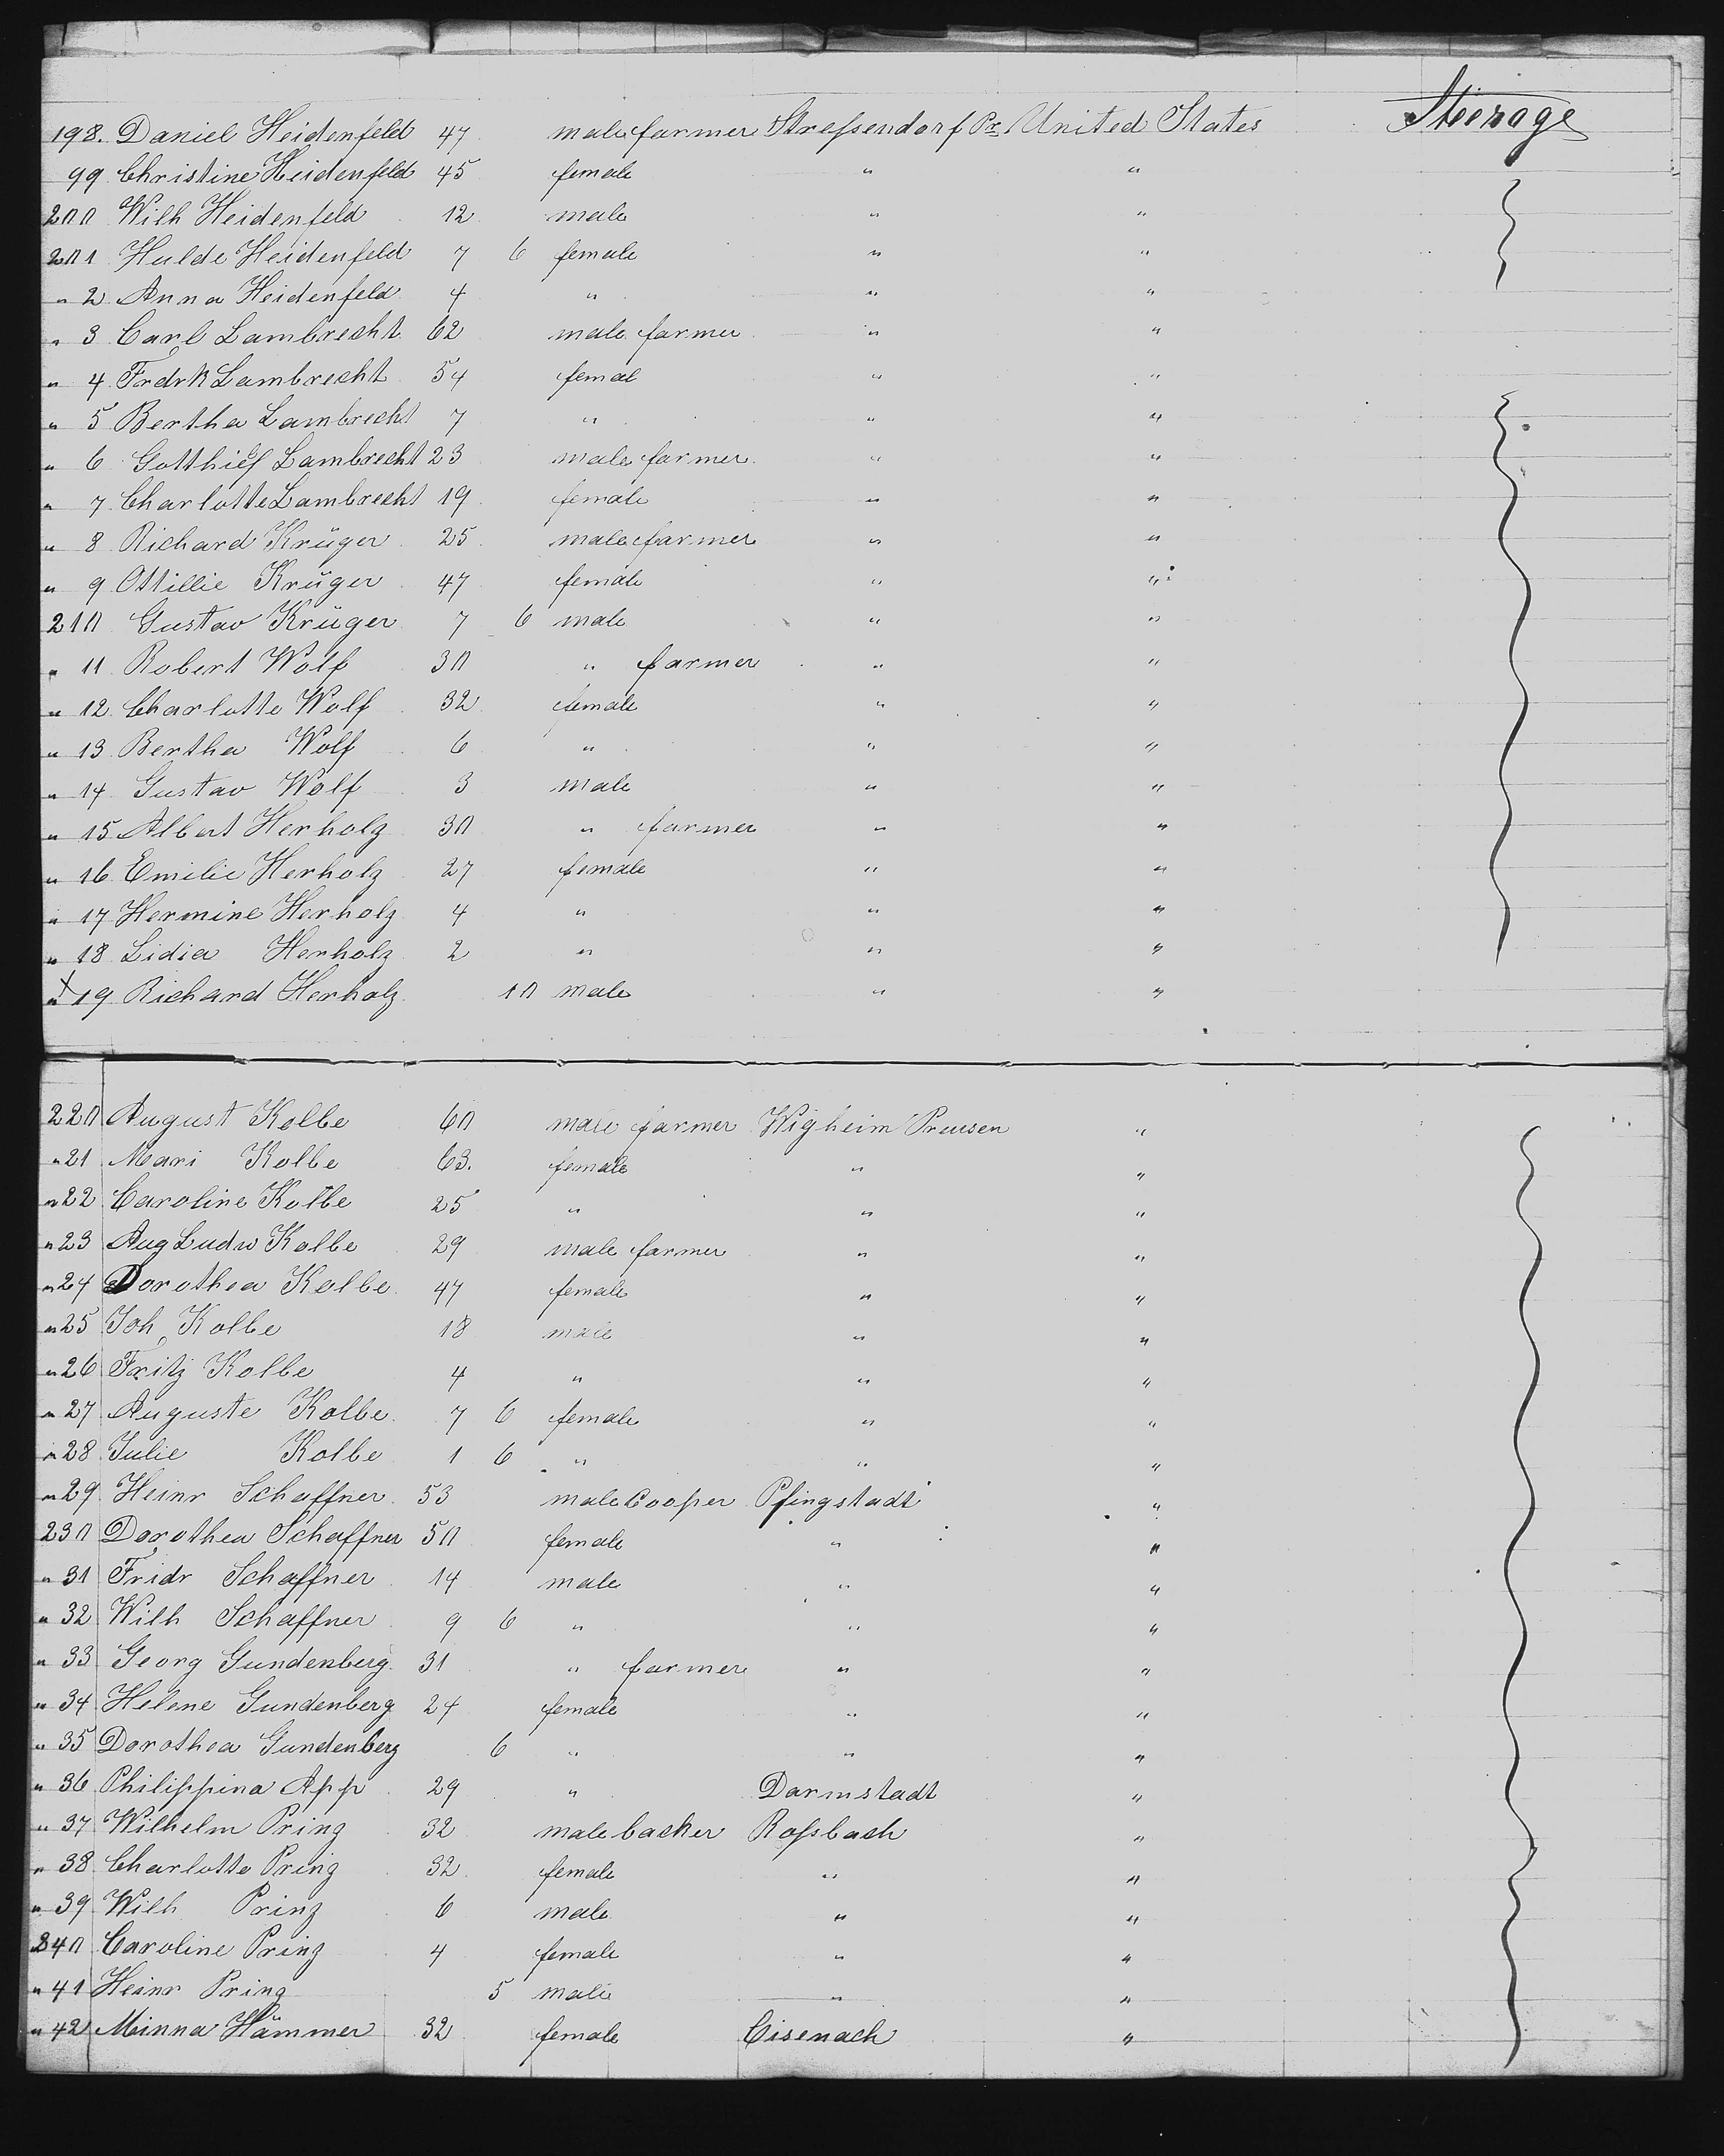 198. Daniel Heidenfeld 47 male farmer Streſsendorf Pr. United States Steerage
99 Christine Heidenfeld 45 female " "
200 Wilh Heidenfeld 12 male " "
201 Hulde Heidenfeld 7 6 female " "
" 2 Anna Heidenfeld 4 " " "
" 3 Carl Lambrecht 62 male farmer " "
" 4 Frdrk Lambrecht 54 femal " "
" 5 Bertha Lambrecht 7 " " "
" 6 Gotthief Lambrecht 23 male farmer " "
" 7 Charlotte Lambrecht 19 female " "
" 8 Richard Krüger 25 male farmer " "
" 9 Ottillie Krüger 47 female " "
210 Gustav Krüger 7 6 male " "
" 11 Robert Wolf 30 " farmer " "
" 12 Charlotte Wolf 32 female " "
" 13 Bertha Wolf 6 " " "
" 14 Gustav Wolf 3 male " "
" 15 Albert Herholz 30 " farmer " "
" 16 Emilie Herholz 27 female " "
" 17 Hermine Herholz 4 " " "
" 18 Lidia Herholz 2 " " "
x " 19 Richard Herholz 10 male " "
220 August Kolbe 60 male farmer Wigheim Preusen "
" 21 Mari Kolbe 63. female " "
" 22 Caroline Kolbe 25 " " "
" 23 Aug Ludw Kolbe 29 male farmer " "
" 24 Dorothea Kolbe 47 female " "
" 25 Joh Kolbe 18 male " "
" 26 Fritz Kolbe 4 " " "
" 27 Auguste Kolbe 7 6 female " "
" 28 Julie Kolbe 1 6 " " "
" 29 Heinr Schaffner 53 male Cooper Pfingstadt "
230 Dorothea Schaffner 50 female " "
" 31 Fridr Schaffner 14 male " "
" 32 Wilh Schaffner 9 6 " " "
" 33 Georg Gundenberg 31 " farmer " "
" 34 Helene Gundenberg 24 female " "
" 35 Dorothea Gundenberg 6 " " "
" 36 Philippina App 29 " Darmstadt "
" 37 Wilhelm Prinz 32 male backer Roſsbach "
" 38 Charlotte Prinz 32 female " "
" 39 Wilh Prinz 6 male " "
240 Caroline Prinz 4 female " "
" 41 Heinr Prinz 5 male " "
" 42 Minna Hämmer 32 female Eisenach "